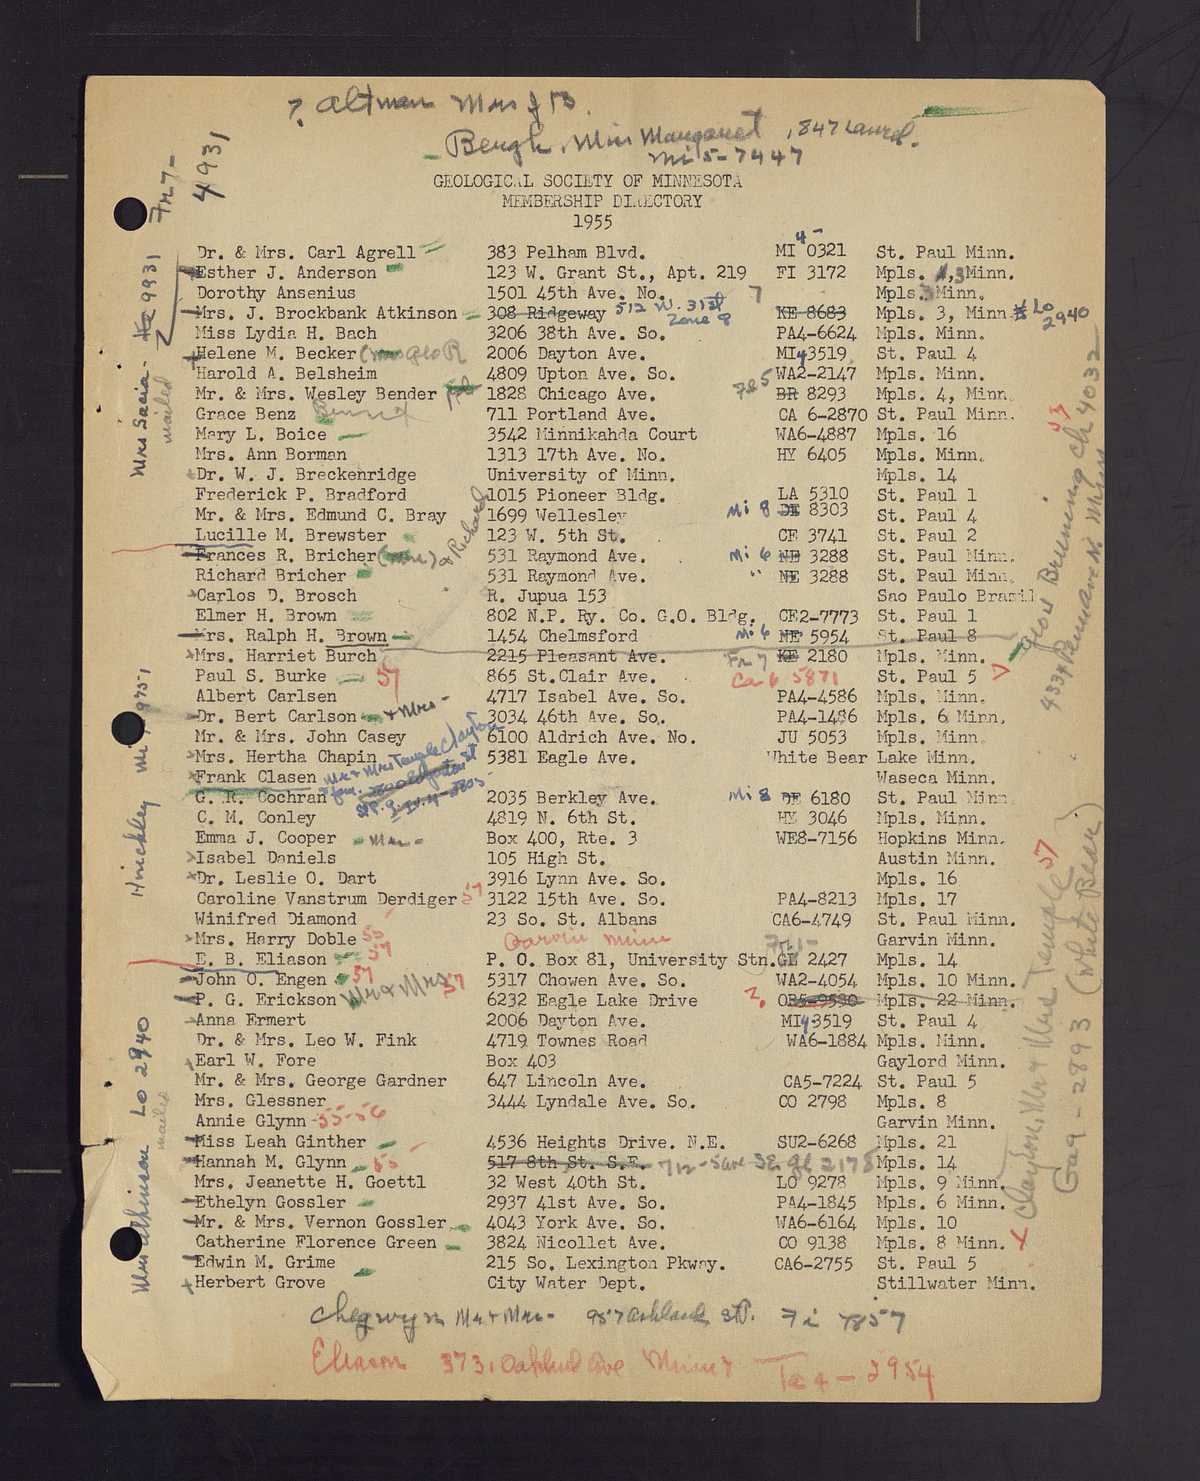 ? Altman Mrs J B.
Bengh, Miss Margaret, 1847 Laurel.
Mi 5-7447
GEOLOGICAL SOCIETY OF MINNESOTA
MEMBERSHIP DIRECTORY
1955
Dr. & Mrs. Carl Agrell 383 Pelham Blvd. MI 4-0321 St. Paul Minn.
Esther J. Anderson 123 W. Grant St., Apt. 219 FI 3172 Mpls. 3, Minn.
Dorothy Ansenius 1501 45th Ave. No. 7 Mpls. Minn.
Mrs. J. Brockbank Atkinson 308 Ridgeway 512 W. 31st Zone 8 KE 8683 Mpls. 3, Minn. Lo 2940
Miss Lydia H. Bach 3206 38th Ave. So. PA4-6624 Mpls. Minn.
Helene M. Becker 2006 Dayton Ave. MI4 3519 St. Paul 4
Harold A. Belsheim 4809 Upton Ave. So. WA2-2147 Mpls. Minn.
Mr. & Mrs. Wesley Bender 1828 Chicago Ave. Fe 5 BR 8293 Mpls. 4, Minn.
Grace Benz 711 Portland Ave. CA 6-2870 St. Paul Minn.
Mary L. Boice 3542 Minnikahda Court WA6-4887 Mpls. 16
Mrs. Ann Borman 1313 17th Ave. No. HY 6405 Mpls. Minn.
Dr. W. J. Breckenridge University of Minn. Mpls. 14
Frederick P. Bradford 1015 Pioneer Bldg. LA 5310 St. Paul 1
Mr. & Mrs. Edmund C. Bray 1699 Wellesley Mi 8 DE 8303 St. Paul 4
Lucille M. Brewster 123 W. 5th St. CE 3741 St. Paul 2
Frances R. Bricher (Mrs.) & Richard 531 Raymond Ave. Mi 6 NE 3288 St. Paul Minn.
Richard Bricher 531 Raymond Ave. " NE 3288 St. Paul Minn.
Carlos D. Brosch R. Jupua 153 Sao Paulo Brazil
Elmer H. Brown 802 N.P. Ry. Co. G.O. Bldg. CE2-7773 St. Paul 1
Mrs. Ralph H. Brown 1454 Chelmsford Mi 6 NE 5954 St. Paul 8
Mrs. Harriet Burch 2215 Pleasant Ave. Fr 7 KE 2180 Mpls. Minn.
Paul S. Burke 57 865 St.Clair Ave. Ca 6 5871 St. Paul 5
Albert Carlsen 4717 Isabel Ave. So. PA4-4586 Mpls. Minn.
Dr. Bert Carlson & Mrs - 3034 46th Ave. So. PA4-1486 Mpls. 6 Minn.
Mr. & Mrs. John Casey 6100 Aldrich Ave. No. JU 5053 Mpls. Minn.
Mrs. Hertha Chapin 5381 Eagle Ave. White Bear Lake Minn.
Frank Clasen Mr & Mrs Temple Clayton Waseca Minn.
G. R. Cochran 2035 Berkley Ave. Mi 8 DE 6180 St. Paul Minn
C. M. Conley 4819 N. 6th St. HY 3046 Mpls. Minn.
Emma J. Cooper - Mrs - Box 400, Rte. 3 WE8-7156 Hopkins Minn.
Isabel Daniels 105 High St. Austin Minn.
Dr. Leslie O. Dart 3916 Lynn Ave. So. Mpls. 16
Caroline Vanstrum Derdiger 57 3122 15th Ave. So. PA4-8213 Mpls. 17
Winifred Diamond 23 So. St. Albans CA6-4749 St. Paul Minn.
Mrs. Harry Doble 55 Garvin Minn Garvin Minn.
E. B. Eliason 57 P. O. Box 81, University Stn. GL 2427 Mpls. 14
John O. Engen 57 5317 Chowen Ave. So. WA2-4054 Mpls. 10 Minn.
P. G. Erickson Mr & Mrs 57 6232 Eagle Lake Drive ? OR5-9530 Mpls. 22 Minn.
Anna Ermert 2006 Dayton Ave. MI4 3519 St. Paul 4
Dr. & Mrs. Leo W. Fink 4719 Townes Road WA6-1884 Mpls. Minn.
Earl W. Fore Box 403 Gaylord Minn.
Mr. & Mrs. George Gardner 647 Lincoln Ave. CA5-7224 St. Paul 5
Mrs. Glessner 3444 Lyndale Ave. So. CO 2798 Mpls. 8
Annie Glynn -55-56 Garvin Minn.
Miss Leah Ginther 4536 Heights Drive. N.E. SU2-6268 Mpls. 21
Hannah M. Glynn 55 517 8th St. S.E. 712-5 ave SE Gl 2178 Mpls. 14
Mrs. Jeanette H. Goettl 32 West 40th St. LO 9278 Mpls. 9 Minn.
Ethelyn Gossler 2937 41st Ave. So. PA4-1845 Mpls. 6 Minn.
Mr. & Mrs. Vernon Gossler 4043 York Ave. So. WA6-6164 Mpls. 10
Catherine Florence Green 3824 Nicollet Ave. CO 9138 Mpls. 8 Minn.
Edwin M. Grime 215 So. Lexington Pkway. CA6-2755 St. Paul 5
Herbert Grove City Water Dept. Stillwater Minn.
Chegwyn Mr & Mrs - 957 Ashland St P. Fi 7857
Eliason 3731 Oakland Ave Minn 7 Ta 4-2954
Fr 7-
4931
Mrs Sacia - 9931
mailed
Hinckley Mi 9751
Mrs Atkinson Lo 2940
mailed
Geo H Bruning Ch 4032
53
4334 Penn ave N. Minn
Clayton, Mr & Mrs Temple 57
Ga9-2893 (White Bear)